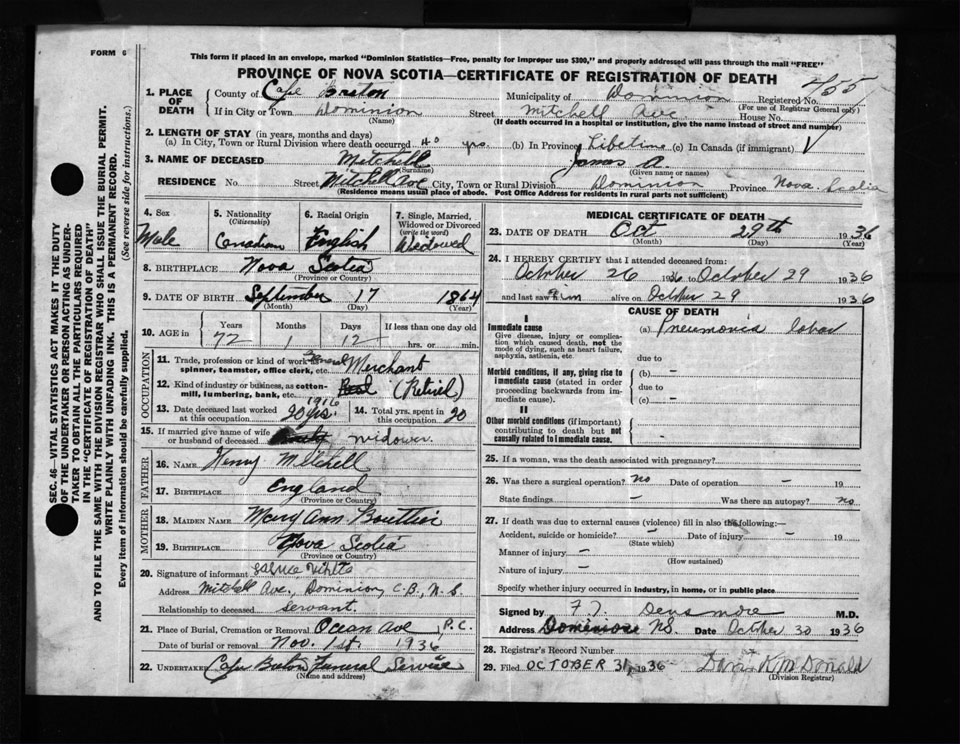 FORM 6
This form if placed in an envelope, marked "Dominion Statistics—Free, penalty for improper use $300," and properly addressed will pass through the mail "FREE"
PROVINCE OF NOVA SCOTIA—CERTIFICATE OF REGISTRATION OF DEATH
SEC. 46—VITAL STATISTICS ACT MAKES IT THE DUTY
OF THE UNDERTAKER OR PERSON ACTING AS UNDER-
TAKER TO OBTAIN ALL THE PARTICULARS REQUIRED
IN THE "CERTIFICATE OF REGISTRATION OF DEATH"
AND TO FILE THE SAME WITH THE DIVISION REGISTRAR WHO SHALL ISSUE THE BURIAL PERMIT.
WRITE PLAINLY WITH UNFADING INK. THIS IS A PERMANENT RECORD.
Every item of information should be carefully supplied. (See reverse side for instructions.)
1. PLACE OF DEATH
County of Cape Breton Municipality of Dominion Registered No. 455
(For use of Registrar General only)
If in City or Town Dominion Street Mitchell Ave. House No.
(Name) (If death occurred in a hospital or institution, give the name instead of street and number)
2. LENGTH OF STAY (in years, months and days)
(a) In City, Town or Rural Division where death occurred 40 yrs. (b) In Province Lifetime (c) In Canada (if immigrant)
3. NAME OF DECEASED Mitchell James A.
(Surname) (Given name or names)
RESIDENCE No. Street Mitchell Ave City, Town or Rural Division Dominion Province Nova Scotia
(Residence means usual place of abode. Post Office Address for residents in rural parts not sufficient)
4. Sex
Male
5. Nationality
(Citizenship)
Canadian
6. Racial Origin
English
7. Single, Married, Widowed or Divorced
(write the word)
Widowed
8. BIRTHPLACE Nova Scotia
(Province or Country)
9. DATE OF BIRTH September 17 1864
(Month) (Day) (Year)
10. AGE in Years Months Days If less than one day old
72 1 12 hrs. or min.
OCCUPATION
11. Trade, profession or kind of work as spinner, teamster, office clerk, etc. Merchant
12. Kind of industry or business, as cotton-mill, lumbering, bank, etc. (Retired)
13. Date deceased last worked at this occupation 1916 20 yrs. 14. Total yrs. spent in this occupation 20
15. If married give name of wife or husband of deceased widower.
FATHER
16. NAME Henry Mitchell
17. BIRTHPLACE England
(Province or Country)
MOTHER
18. MAIDEN NAME Mary Ann Bouttier
19. BIRTHPLACE Nova Scotia
(Province or Country)
20. Signature of informant
Address Mitchell Ave., Dominion, C.B., N.S.
Relationship to deceased servant.
21. Place of Burial, Cremation or Removal Ocean Ave, P.C.
Date of burial or removal Nov. 1st. 1936
22. UNDERTAKER Cape Breton Funeral Service
(Name and address)
MEDICAL CERTIFICATE OF DEATH
23. DATE OF DEATH Oct 29th 1936
(Month) (Day) (Year)
24. I HEREBY CERTIFY that I attended deceased from:
October 26 1936 to October 29 1936
and last saw him alive on October 29 1936
CAUSE OF DEATH
I
Immediate cause
Give disease, injury or complication which caused death, not the mode of dying, such as heart failure, asphyxia, asthenia, etc.
(a) Pneumonia lobar
due to
Morbid conditions, if any, giving rise to immediate cause (stated in order proceeding backwards from immediate cause).
(b) —
due to
(c) —
II
Other morbid conditions (if important) contributing to death but not causally related to immediate cause.
25. If a woman, was the death associated with pregnancy?
26. Was there a surgical operation? no Date of operation — 19
State findings — Was there an autopsy? no
27. If death was due to external causes (violence) fill in also the following:—
Accident, suicide or homicide? — Date of injury — 19
(State which)
Manner of injury —
(How sustained)
Nature of injury —
Specify whether injury occurred in industry, in home, or in public place
Signed by F. T. Densmore M.D.
Address Dominion NS. Date October 30 1936
28. Registrar's Record Number
29. Filed OCTOBER 31, 1936 Dan K. McDonald
(Division Registrar)